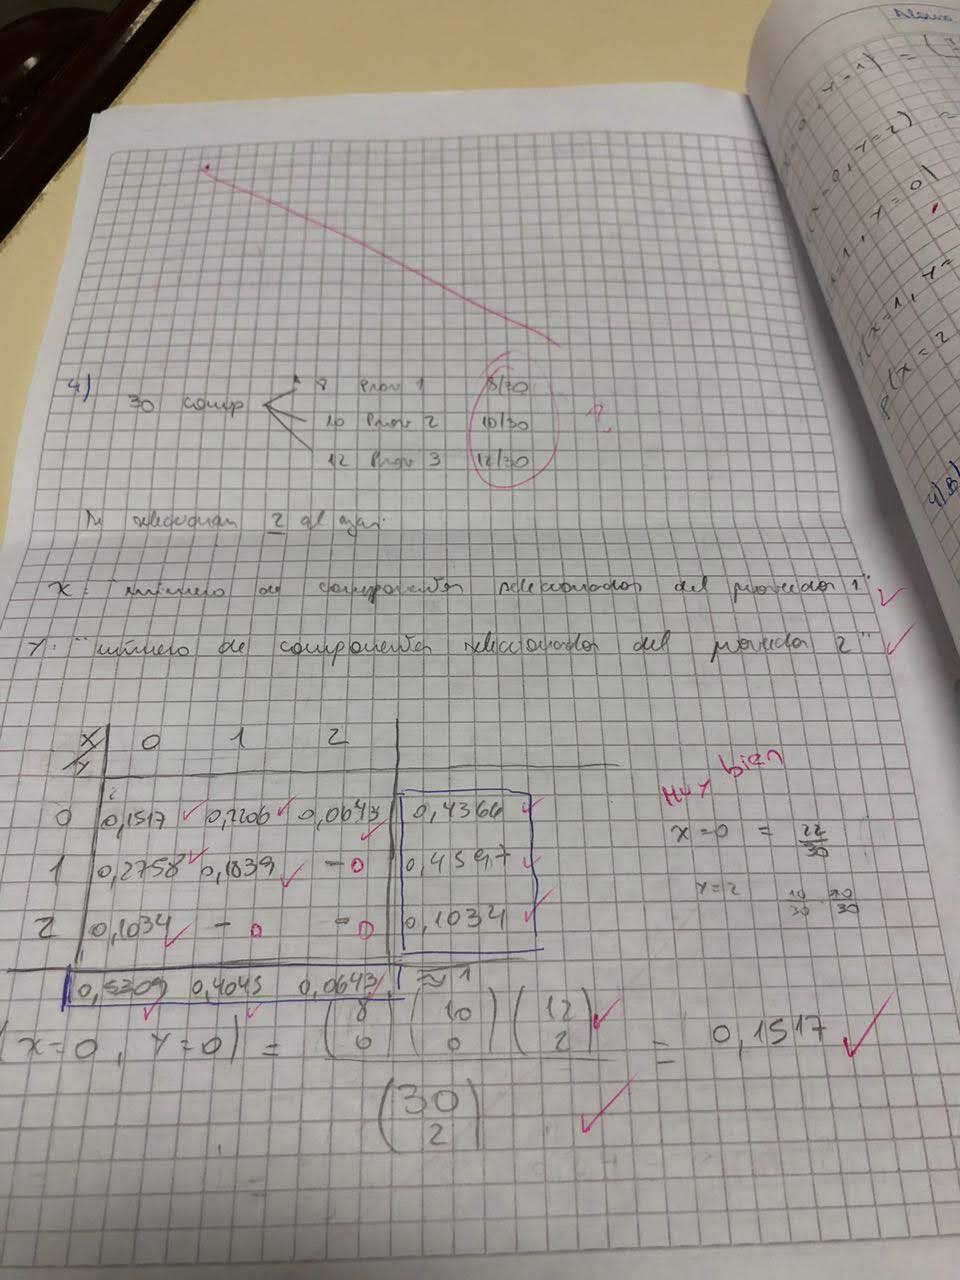 4)
30 comp
8 Prov 1 8/30
10 Prov 2 10/30
12 Prov 3 12/30
?
Se seleccionan 2 al azar.
X: "número de componentes seleccionados del proveedor 1" ✓
Y: "número de componentes seleccionados del proveedor 2" ✓
X/Y 0 1 2
0 0,1517 ✓ 0,2206 ✓ 0,0643 ✓ 0,4366 ✓
1 0,2758 ✓ 0,1839 ✓ - 0 0,4597 ✓
2 0,1034 ✓ - 0 - 0 0,1034 ✓
0,5309 ✓ 0,4045 ✓ 0,0643 ≈ 1
Muy bien
x=0 = 22/30
Y=2 10/30
(x=0, Y=0) = (8 0) (10 0) (12 2) ✓ / (30 2) ✓ = 0,1517 ✓
Y=1) = (
Y=2) =
Y=0)
(x=1, Y=
P(x=2
4)B)